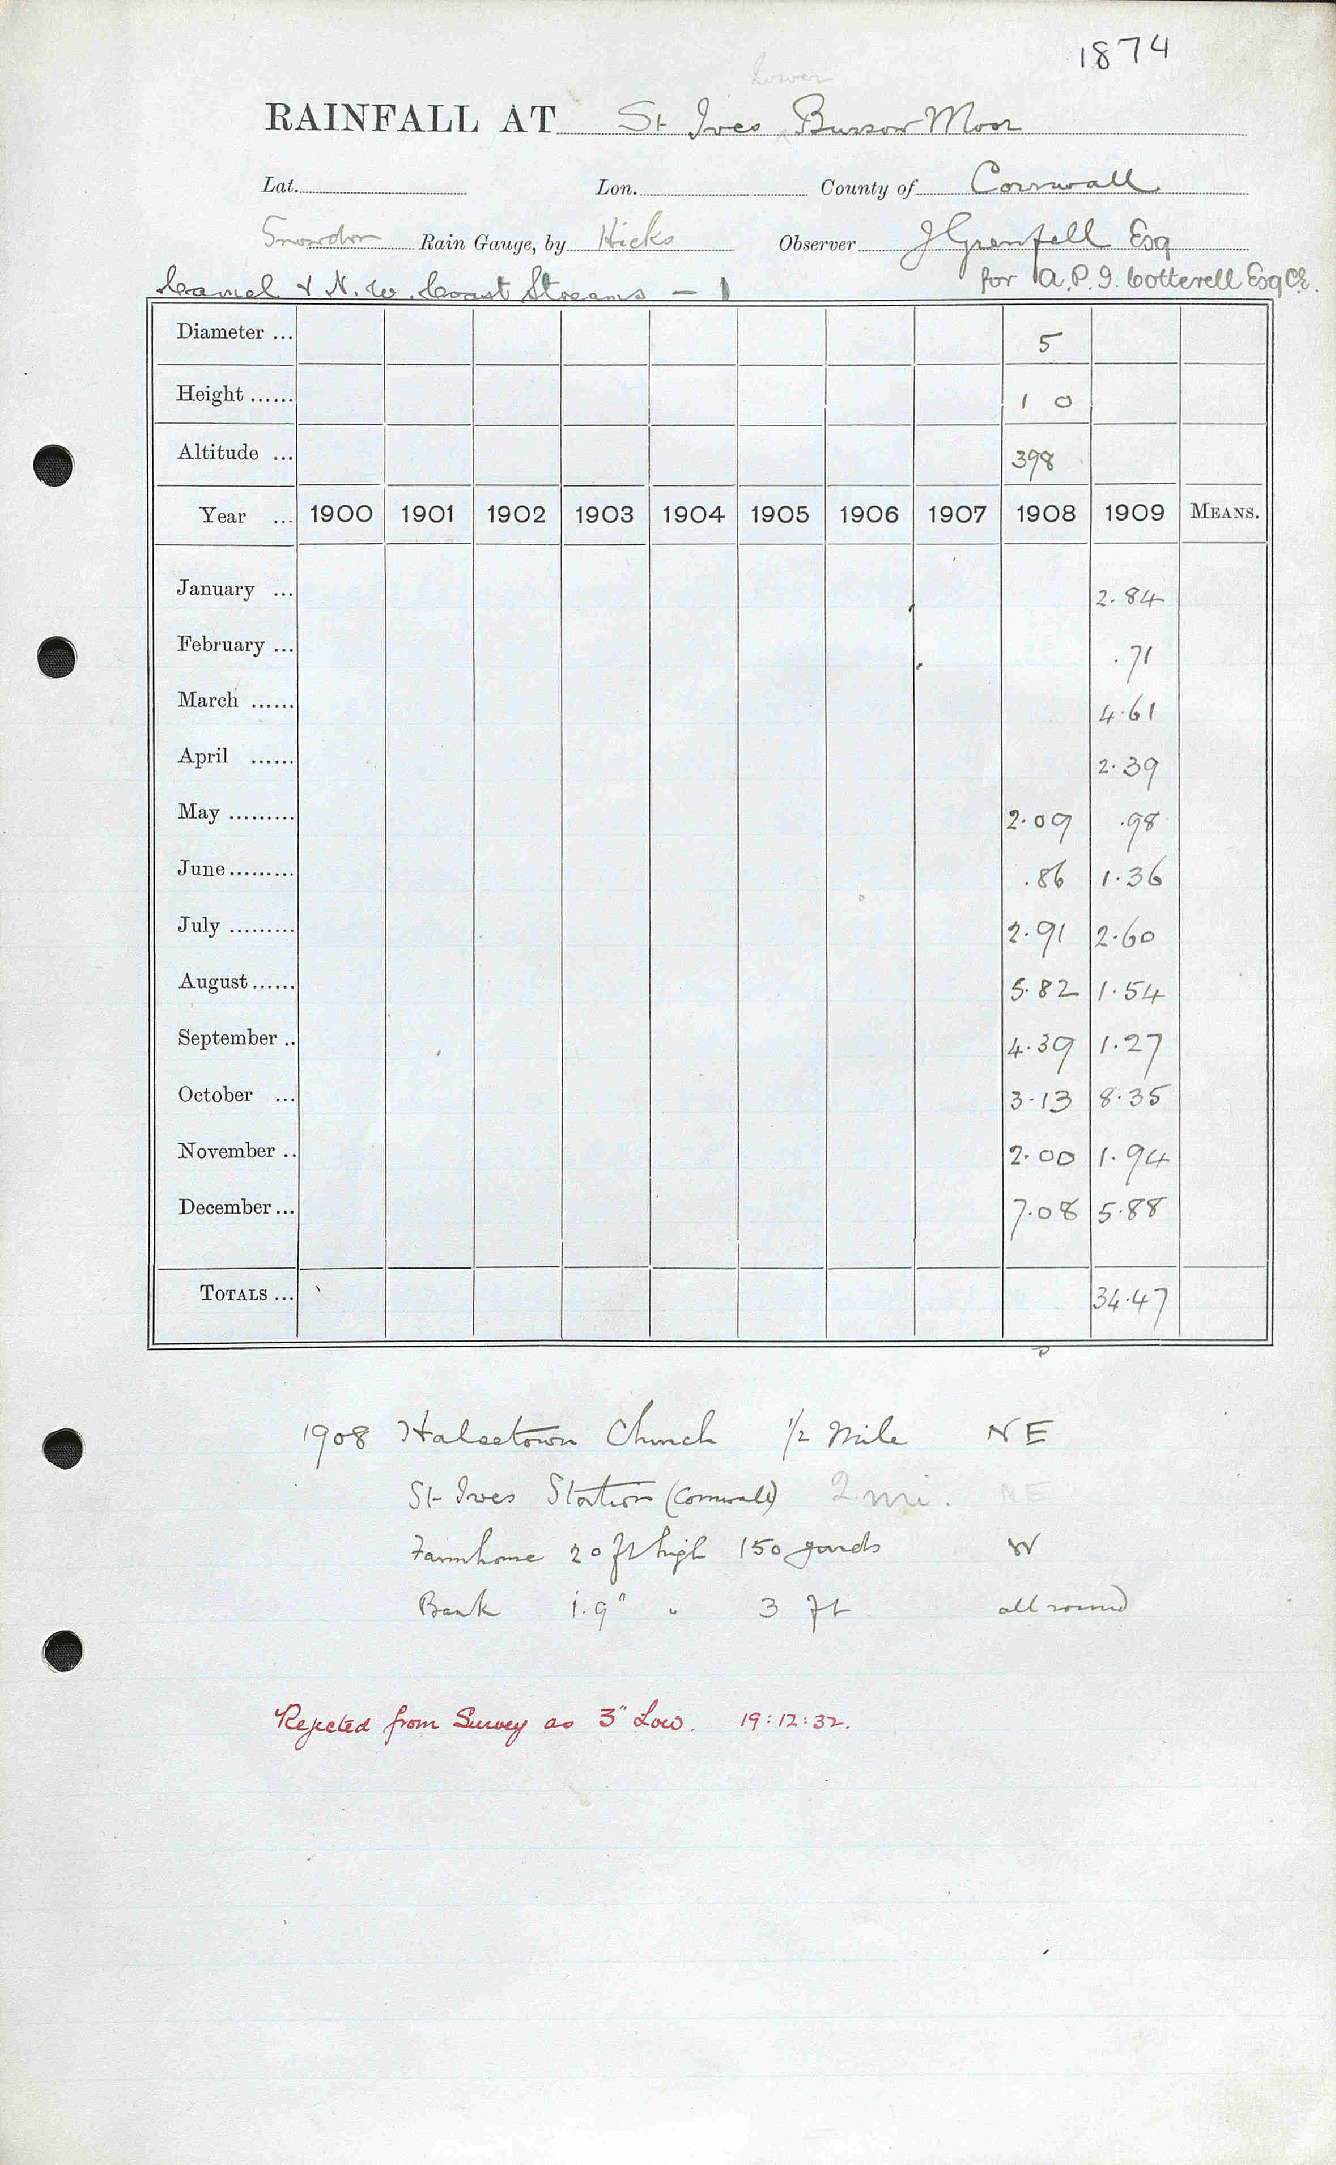 1874
Lower
RAINFALL AT St Ives, Bussow Moor
Lat. Lon. County of Cornwall
Snowdon Rain Gauge, by Hicks Observer J Grenfell Esq
Camel & N.W. Coast Streams - 1 for A.P.I. Cotterell Esq CE.
Diameter ... 5
Height ...... 1 0
Altitude ... 398
Year ... 1900 1901 1902 1903 1904 1905 1906 1907 1908 1909 MEANS.
January ... 2.84
February ... .71
March ...... 4.61
April ...... 2.39
May ......... 2.09 .98
June......... .86 1.36
July ......... 2.91 2.60
August...... 5.82 1.54
September .. 4.39 1.27
October ... 3.13 8.35
November .. 2.00 1.94
December ... 7.08 5.88
TOTALS ... 34.47
1908 Halsetown Church 1/2 Mile NE
St Ives Station (Cornwall) 2 mi. NE
Farmhouse 20 ft high 150 yards W
Bank 1.9" " 3 ft all round
Rejected from Survey as 3" Low. 19:12:32.